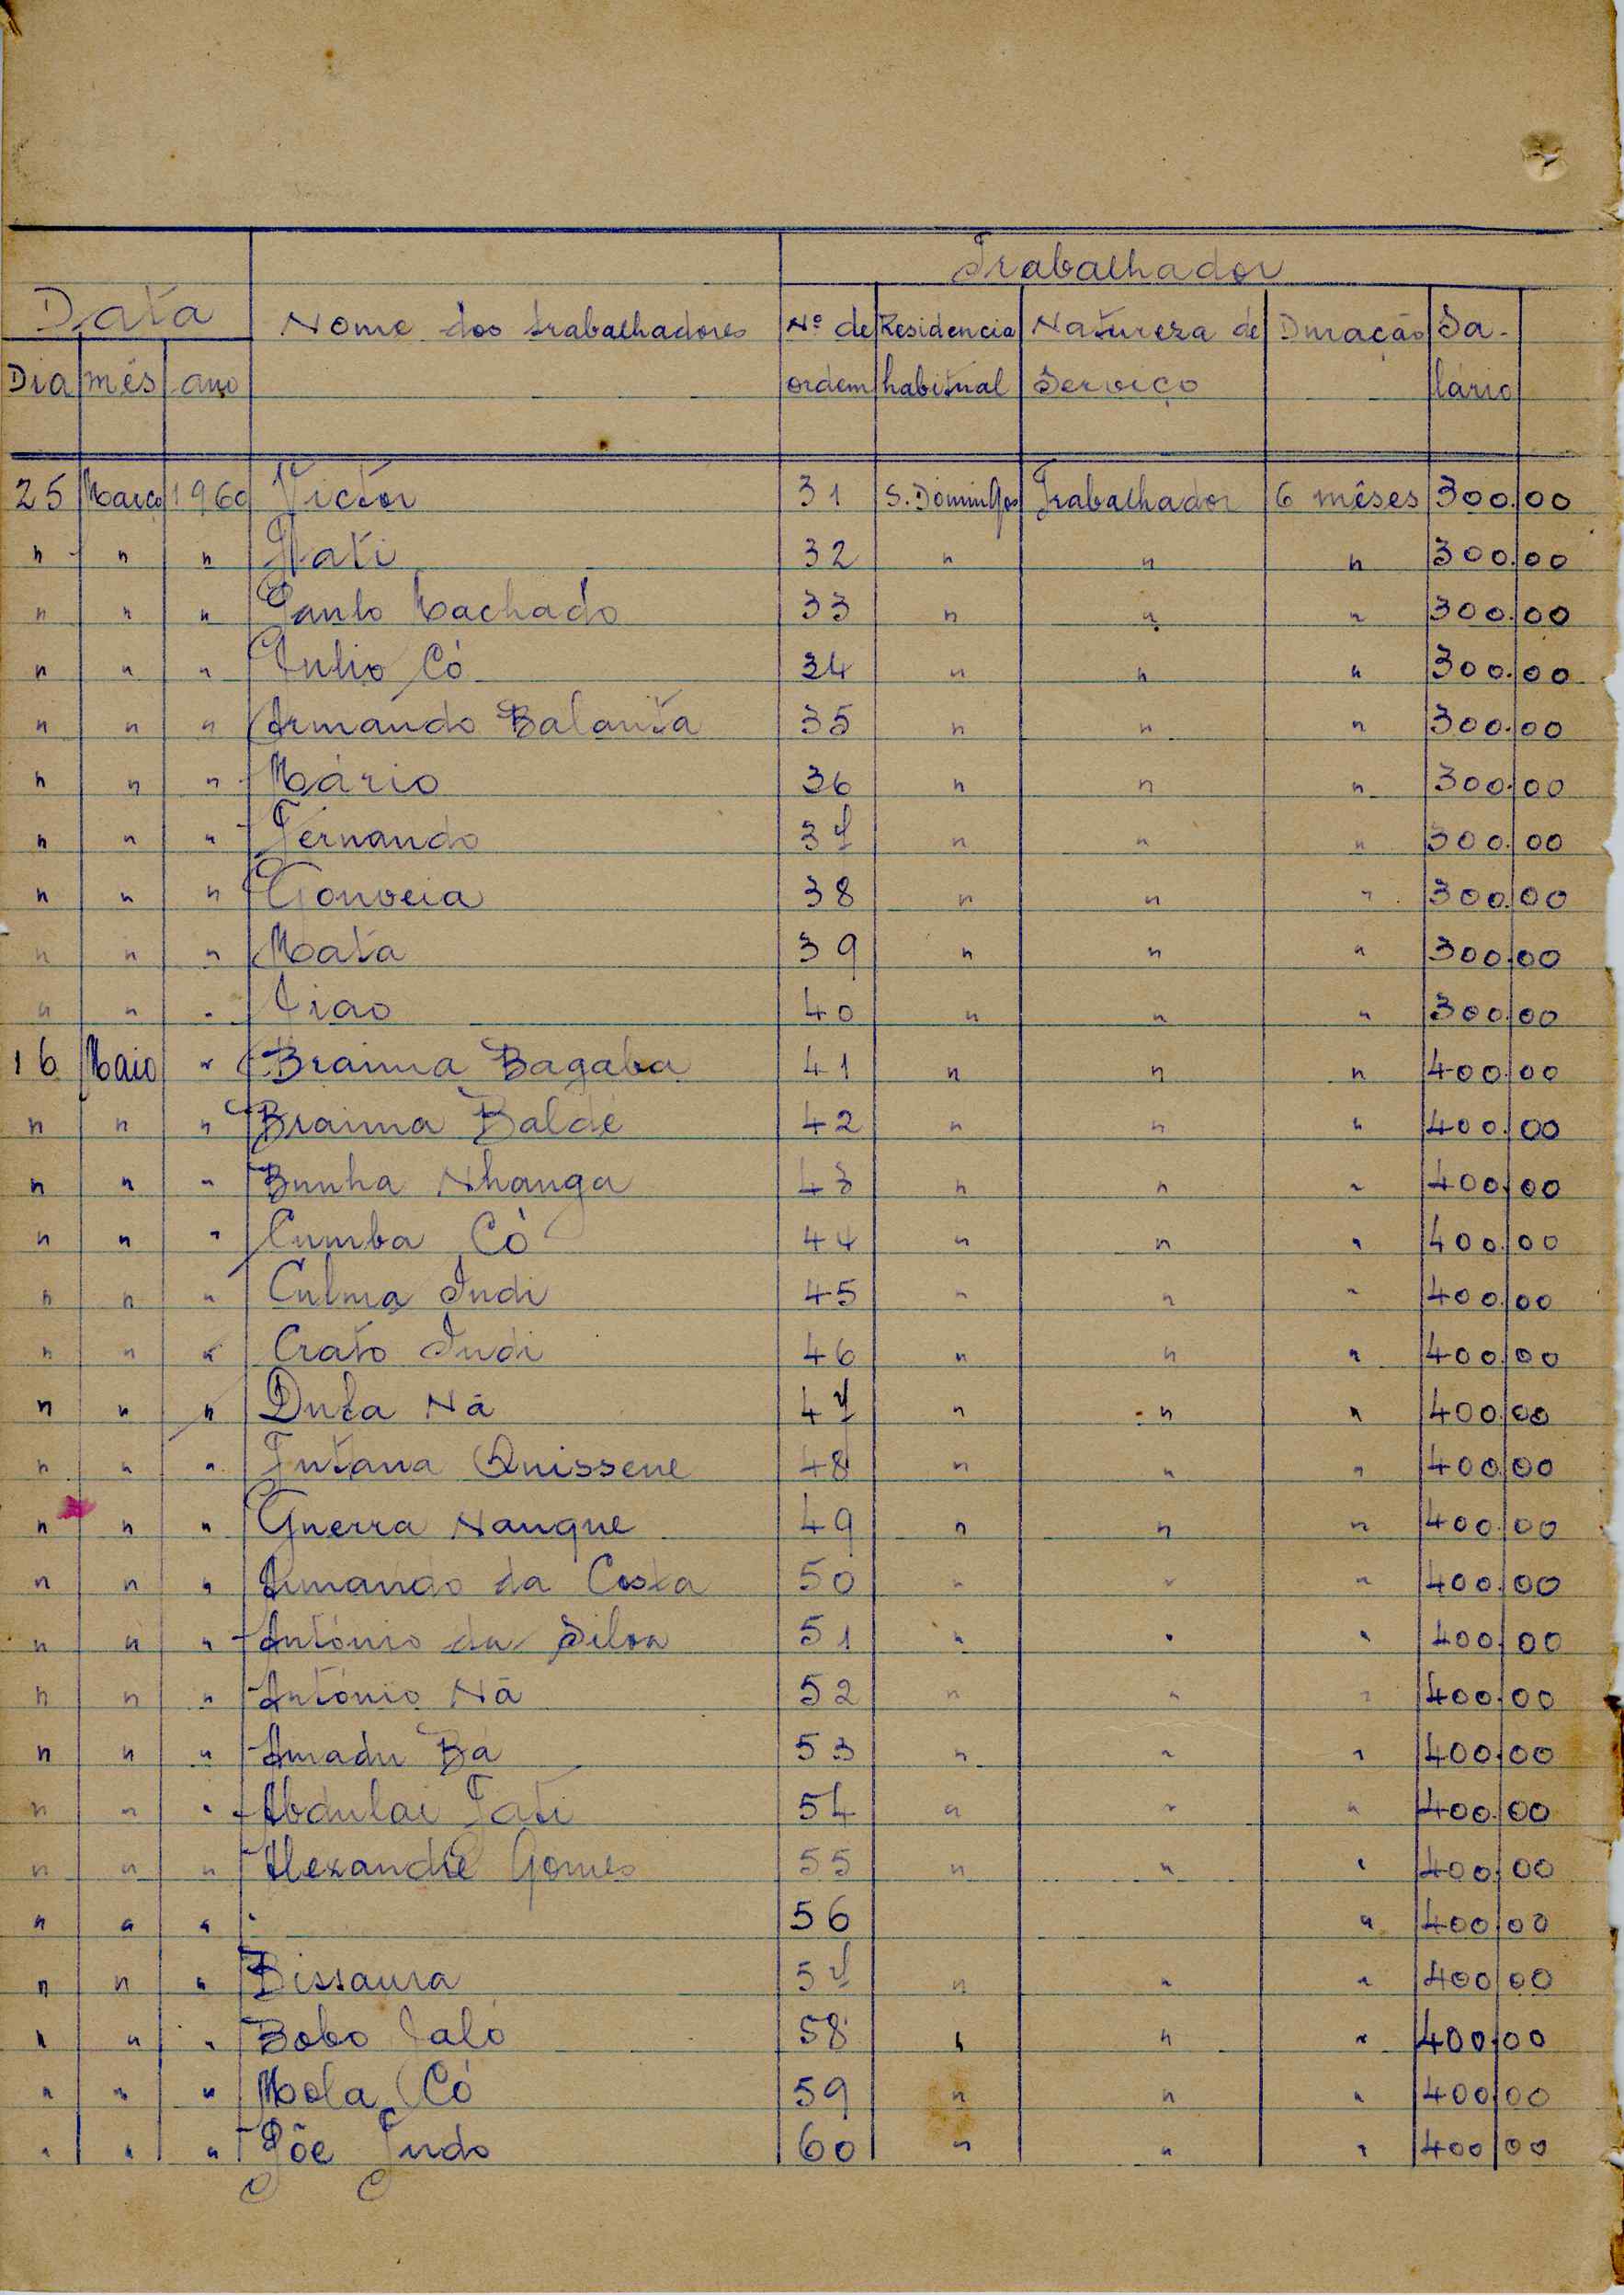 Trabalhador
Data Nome dos trabalhadores Nº de Residencia Natureza de Duração Sa-
Dia mês ano ordem habitual Serviço lário
25 Março 1960 Victor 31 S. Domingos Trabalhador 6 mêses 300.00
" " " 32 " " " 300.00
" " " Paulo Machado 33 " " " 300.00
" " " Julio Có 34 " " " 300.00
" " " Armando Balanta 35 " " " 300.00
" " " Mário 36 " " " 300.00
" " " Fernando 37 " " " 300.00
" " " Gouveia 38 " " " 300.00
" " " Mata 39 " " " 300.00
" " " 40 " " " 300.00
16 Maio " Braima Bagaba 41 " " " 400.00
" " " Braima Baldé 42 " " " 400.00
" " " Bunha Nhanga 43 " " " 400.00
" " " Cumba Cò 44 " " " 400.00
" " " Culma Indi 45 " " " 400.00
" " " Crato Indi 46 " " " 400.00
" " " Duta Nã 47 " " " 400.00
" " " Futana Quissene 48 " " " 400.00
" " " Guerra Nanque 49 " " " 400.00
" " " Armando da Costa 50 " " " 400.00
" " " António da Silva 51 " " " 400.00
" " " António Nã 52 " " " 400.00
" " " Amadu Bá 53 " " " 400.00
" " " Abdulai Fati 54 " " " 400.00
" " " Alexandre Gomes 55 " " " 400.00
" " " 56 " 400.00
" " " Bissaura 57 " " " 400.00
" " " Bobo Jaló 58 " " " 400.00
" " " Mola Có 59 " " " 400.00
" " " Põe Tudo 60 " " " 400.00